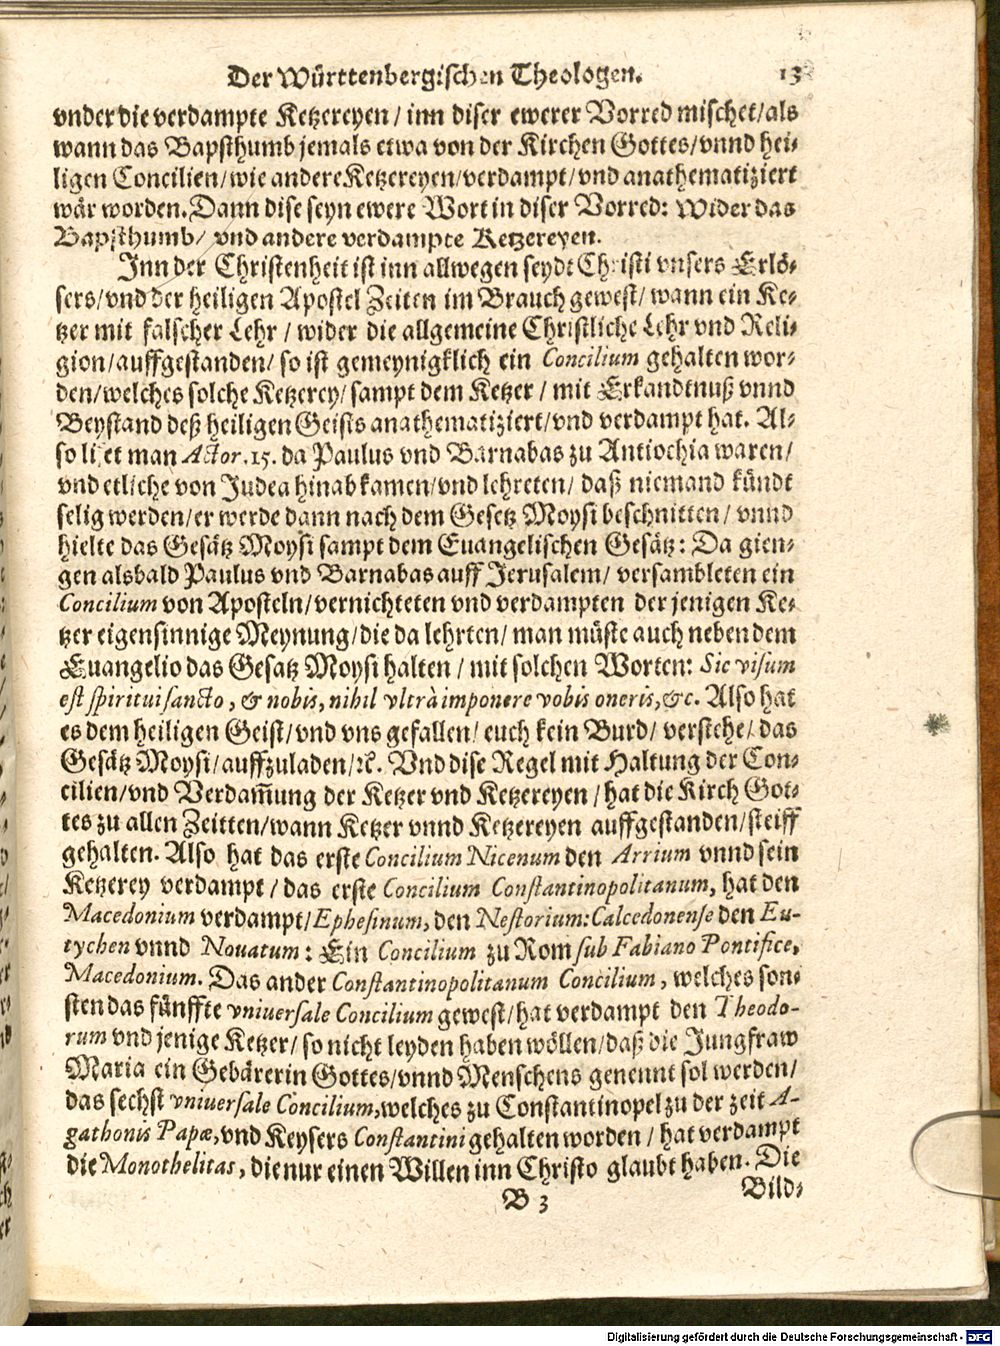 Der Württenbergischen Theologen. 13
vnder die verdampte Ketzereyen / inn diser ewerer Vorred mischet / als
wann das Bapsthumb jemals etwa von der Kirchen Gottes / vnnd hei-
ligen Concilien / wie andere Ketzereyen / verdampt / vnd anathematiziert
wär worden. Dann dise seyn ewere Wort in diser Vorred: Wider das
Bapsthumb / vnd andere verdampte Ketzereyen.
Inn der Christenheit ist inn allwegen seydt Christi vnsers Erlö-
sers / vnd der heiligen Apostel Zeiten im Brauch gewest / wann ein Ke-
tzer mit falscher Lehr / wider die allgemeine Christliche Lehr vnd Reli-
gion / auffgestanden / so ist gemeynigklich ein Concilium gehalten wor-
den / welches solche Ketzerey / sampt dem Ketzer / mit Erkandtnuß vnnd
Beystand deß heiligen Geists anathematiziert / vnd verdampt hat. Al-
so liset man Actor. 15. da Paulus vnd Barnabas zu Antiochia waren /
vnd etliche von Judea hinab kamen / vnd lehreten / daß niemand kündt
selig werden / er werde dann nach dem Gesetz Moysi beschnitten / vnnd
hielte das Gesätz Moysi sampt dem Euangelischen Gesätz: Da gien-
gen alsbald Paulus vnd Barnabas auff Jerusalem / versambleten ein
Concilium von Aposteln / vernichteten vnd verdampten der jenigen Ke-
tzer eigensinnige Meynung / die da lehrten / man müste auch neben dem
Euangelio das Gesatz Moysi halten / mit solchen Worten: Sic visum
est spiritui sancto, & nobis, nihil vltrà imponere vobis oneris, &c. Also hat
es dem heiligen Geist / vnd vns gefallen / euch kein Burd / verstehe / das
Gesätz Moysi / auffzuladen / ꝛc. Vnd dise Regel mit Haltung der Con-
cilien / vnd Verdam̃ung der Ketzer vnd Ketzereyen / hat die Kirch Got-
tes zu allen Zeitten / wann Ketzer vnnd Ketzereyen auffgestanden / steiff
gehalten. Also hat das erste Concilium Nicenum den Arrium vnnd sein
Ketzerey verdampt / das erste Concilium Constantinopolitanum, hat den
Macedonium verdampt / Ephesinum, den Nestorium: Calcedonense den Eu-
tychen vnnd Nouatum: Ein Concilium zu Rom sub Fabiano Pontifice,
Macedonium. Das ander Constantinopolitanum Concilium, welches son-
sten das fünffte vniuersale Concilium gewest / hat verdampt den Theodo-
rum vnd jenige Ketzer / so nicht leyden haben wöllen / daß die Jungfraw
Maria ein Gebärerin Gottes / vnnd Menschens genennt sol werden /
das sechst vniuersale Concilium, welches zu Constantinopel zu der zeit A-
gathonis Papæ, vnd Keysers Constantini gehalten worden / hat verdampt
die Monothelitas, die nur einen Willen inn Christo glaubt haben. Die
B 3 Bild-
Digitalisierung gefördert durch die Deutsche Forschungsgemeinschaft - DFG